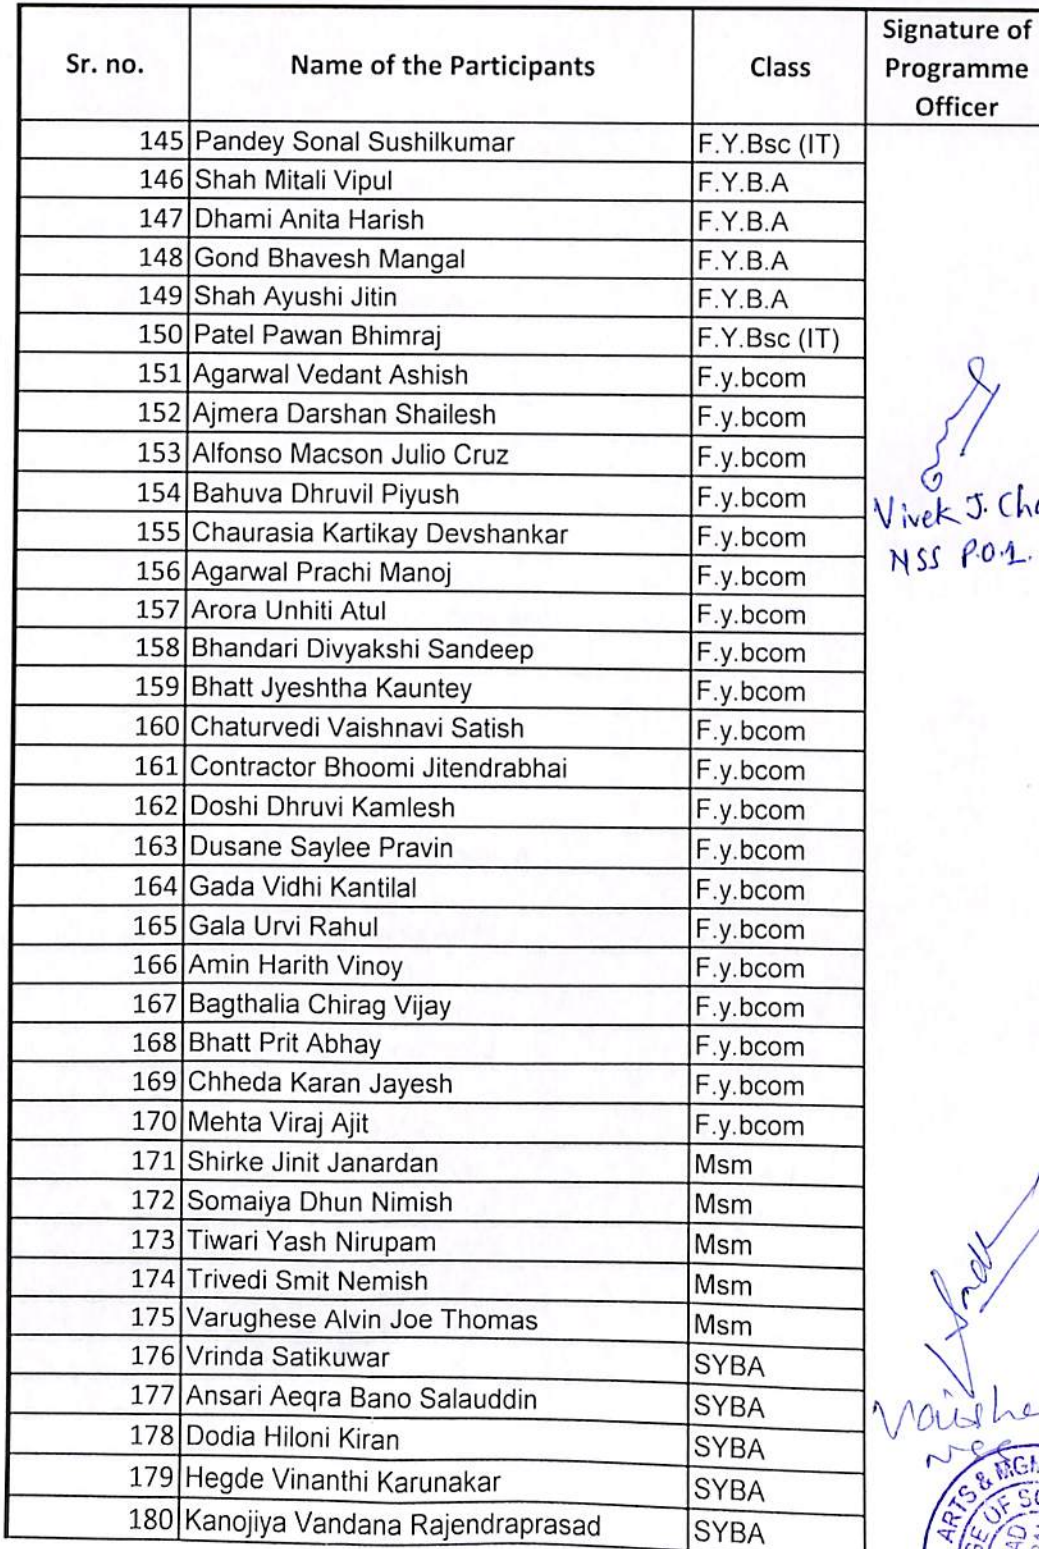 Sr. no. Name of the Participants Class Signature of Programme Officer
145 Pandey Sonal Sushilkumar F.Y.Bsc (IT)
146 Shah Mitali Vipul F.Y.B.A
147 Dhami Anita Harish F.Y.B.A
148 Gond Bhavesh Mangal F.Y.B.A
149 Shah Ayushi Jitin F.Y.B.A
150 Patel Pawan Bhimraj F.Y.Bsc (IT)
151 Agarwal Vedant Ashish F.y.bcom
152 Ajmera Darshan Shailesh F.y.bcom
153 Alfonso Macson Julio Cruz F.y.bcom
154 Bahuva Dhruvil Piyush F.y.bcom
Vivek J.
155 Chaurasia Kartikay Devshankar F.y.bcom
NSS P.O.1.
156 Agarwal Prachi Manoj F.y.bcom
157 Arora Unhiti Atul F.y.bcom
158 Bhandari Divyakshi Sandeep F.y.bcom
159 Bhatt Jyeshtha Kauntey F.y.bcom
160 Chaturvedi Vaishnavi Satish F.y.bcom
161 Contractor Bhoomi Jitendrabhai F.y.bcom
162 Doshi Dhruvi Kamlesh F.y.bcom
163 Dusane Saylee Pravin F.y.bcom
164 Gada Vidhi Kantilal F.y.bcom
165 Gala Urvi Rahul F.y.bcom
166 Amin Harith Vinoy F.y.bcom
167 Bagthalia Chirag Vijay F.y.bcom
168 Bhatt Prit Abhay F.y.bcom
169 Chheda Karan Jayesh F.y.bcom
170 Mehta Viraj Ajit F.y.bcom
171 Shirke Jinit Janardan Msm
172 Somaiya Dhun Nimish Msm
173 Tiwari Yash Nirupam Msm
174 Trivedi Smit Nemish Msm
175 Varughese Alvin Joe Thomas Msm
176 Vrinda Satikuwar SYBA
177 Ansari Aeqra Bano Salauddin SYBA
178 Dodia Hiloni Kiran SYBA
NSS
179 Hegde Vinanthi Karunakar SYBA
ARTS &
180 Kanojiya Vandana Rajendraprasad SYBA